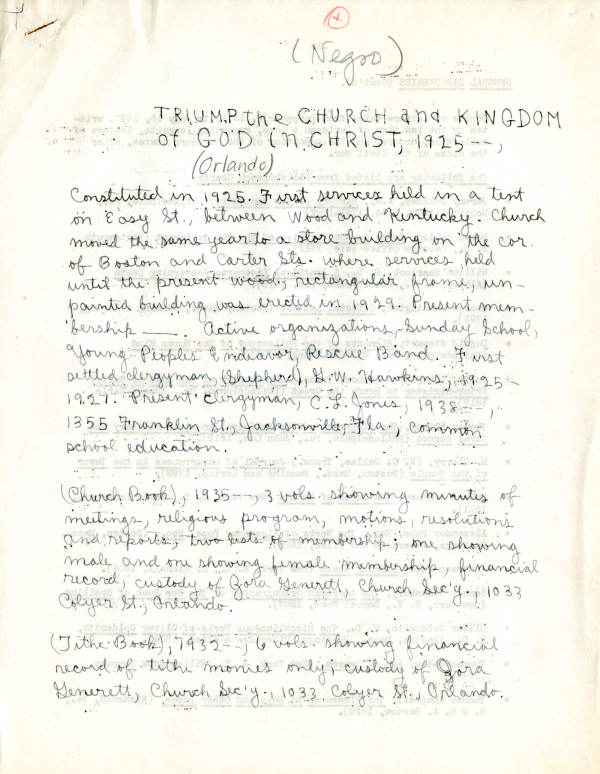 (Negro)
TRIUMP the CHURCH and KINGDOM
of GOD in CHRIST, 1925 --,
(Orlando)
Constituted in 1925. First services held in a tent
on Easy St., between Wood and Kentucky. Church
moved the same year to a store building on the cor.
of Boston and Carter Sts. where services held
until the present wood, rectangular frame, un-
painted building was erected in 1929. Present mem-
bership ___. Active organizations, Sunday School,
Young Peoples Endeavor, Rescue Band. First
settled clergyman, (Shepherd), H.W. Hawkins, 1925-
1927. Present clergyman, C. L. Jones, 1938 --,
1355 Franklin St., Jacksonville, Fla., common
school education.
(Church Book), 1935 --, 3 vols. showing minutes of
meetings, religious program, motions, resolutions
and reports, two lists of membership; one showing
male and one showing female membership, financial
record, custody of Zora Generett, Church Sec'y., 1033
Colyer St., Orlando.
(Tithe Book), 1932 --, 6 vols. showing financial
record of tithe monies only; custody of Zora
Generett, Church Sec'y., 1033 Colyer St., Orlando.